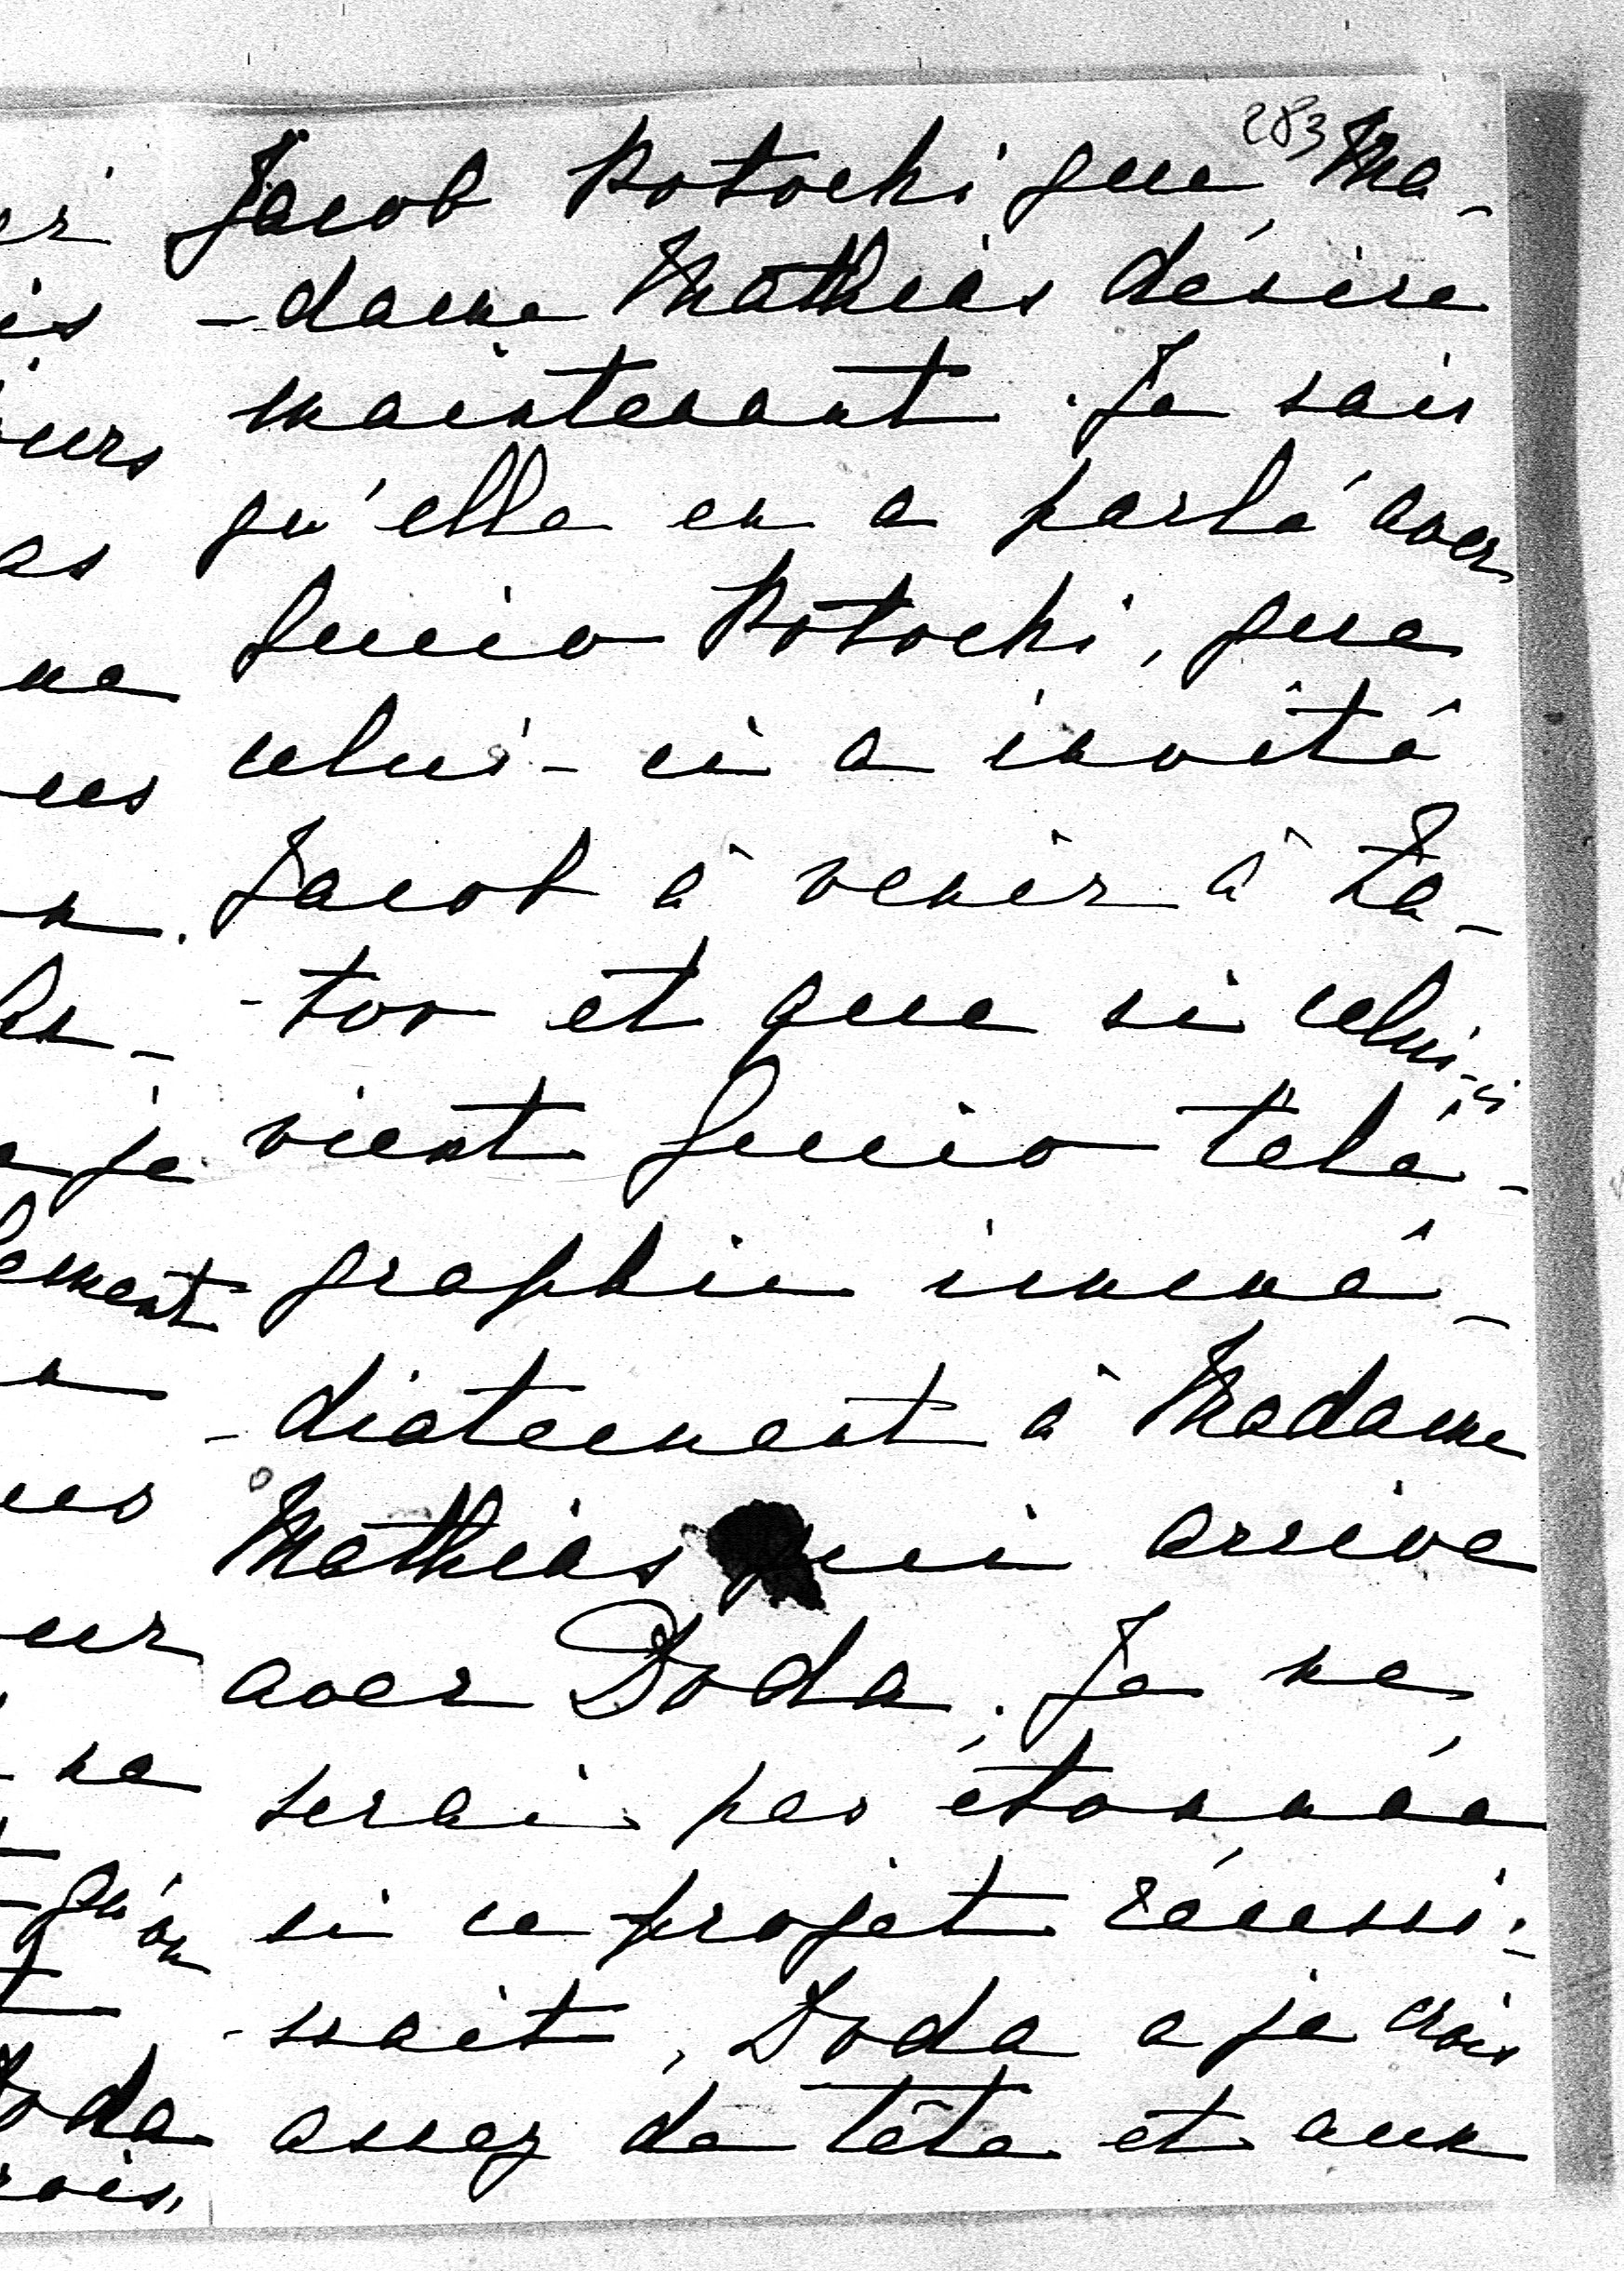 283
Jacob Potocki que Ma-
-dame Mathias désire
maintenant. Je sais
qu'elle en a parlé avec
Lucio Potocki, que
celui-ci a invité
Jacob à venir à La-
-tor et que si celui-ci
vient Lucio télé-
graphie immé-
-diatement à Madame
Mathias qui arrive
avec Doda. Je ne
serai pas étonnée
si ce projet réussi-
-sait, Doda a je crois
assez de tête et aux